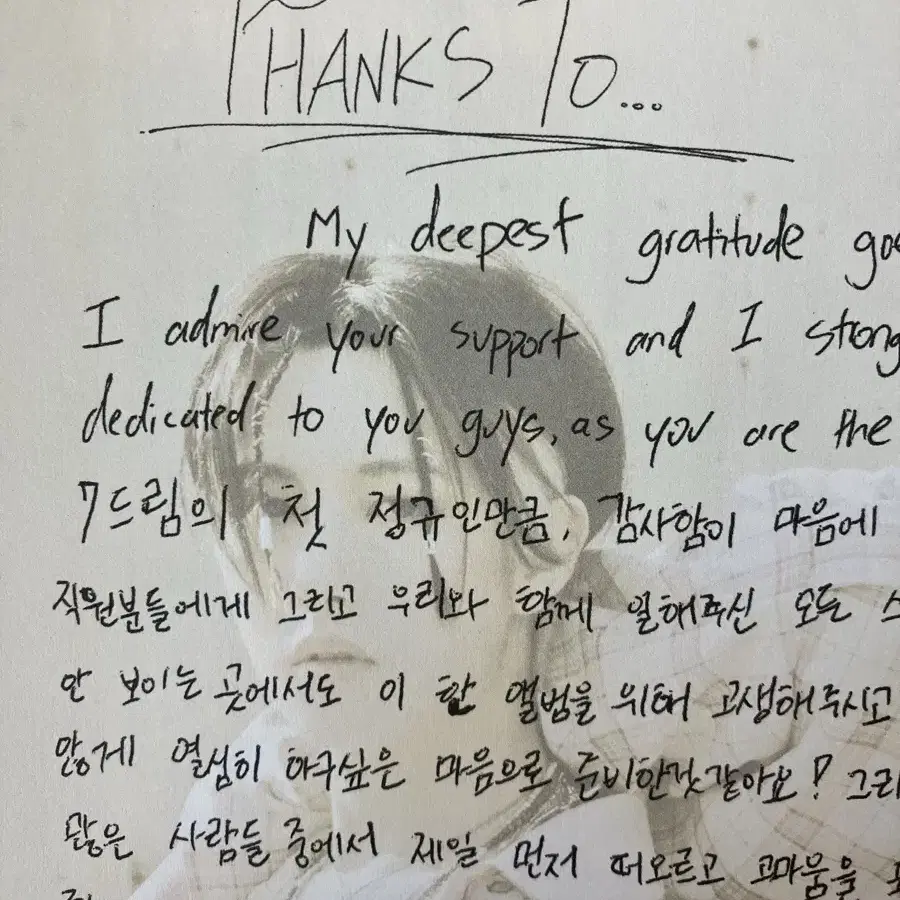 THANKS TO...
My deepest gratitude goe
I admire your support and I strong
dedicated to you guys, as you are the
7드림의 첫 정규인만큼, 감사함이 마음에
직원분들에게 그리고 우리와 함께 일해주신 모든 스
안 보이는 곳에서도 이 한 앨범을 위해 고생해주시고
않게 열심히 하구싶은 마음으로 준비한것같아요! 그리
많은 사람들 중에서 제일 먼저 떠오르고 고마움을